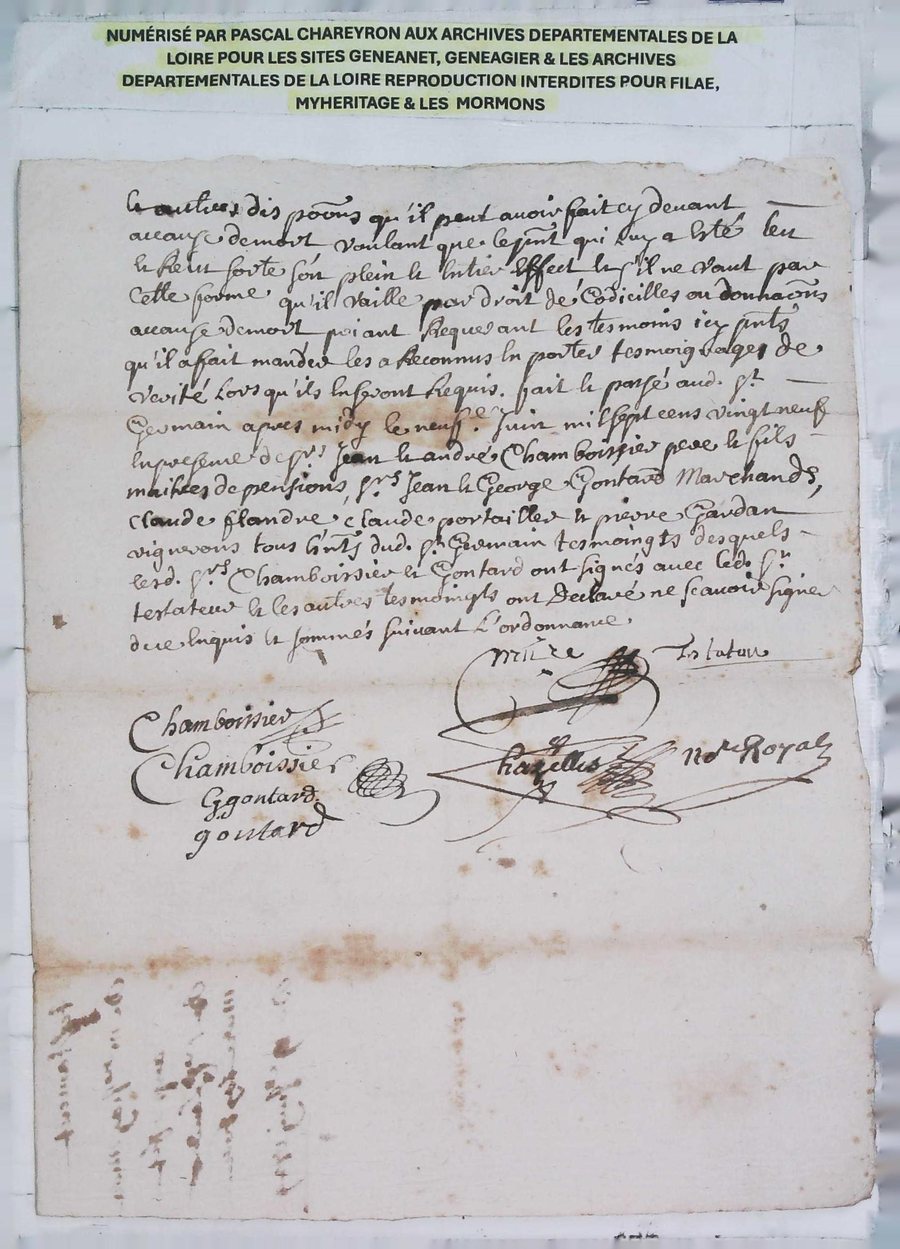 NUMÉRISÉ PAR PASCAL CHAREYRON AUX ARCHIVES DEPARTEMENTALES DE LA
LOIRE POUR LES SITES GENEANET, GENEAGIER & LES ARCHIVES
DEPARTEMENTALES DE LA LOIRE REPRODUCTION INTERDITES POUR FILAE,
MYHERITAGE & LES MORMONS
et autres dispoõns qu'il peut avoir fait cy devant
accause demort voulant que le pñt qui luy a esté leu
et releu sorte son plein et entier Effect et s'il ne vaut par
cette forme qu'il vaille par droit de Codicilles ou donnaõns
accause demort priant Requerant les tesmoins icy pnts
qu'il a fait mander les a Reconnus en porter tesmoignages de
verité Lors qu'ils en seront Requis. fait et passé aud. St
Germain apres midy le neufe Juin mil sept cens vingt neuf
en presence de srs Jean et andré Chamboissier pere et fils
maitres de pensions, srs Jean et George Gontard Marchands,
Claude flandre, claude portailler et pierre Gardan
vignerons tous hnts dud. St Germain tesmoingts desquels
lesd. srs Chamboissier et Gontard ont signés avec led. sr
testateur et les autres tesmoingts ont Declaré ne scavoir signer
de ce enquis et sommés suivant L'ordonnance.
Testateur
Chamboissier
Chamboissier
Ggontard
goutard
Chazelles Nore Royal